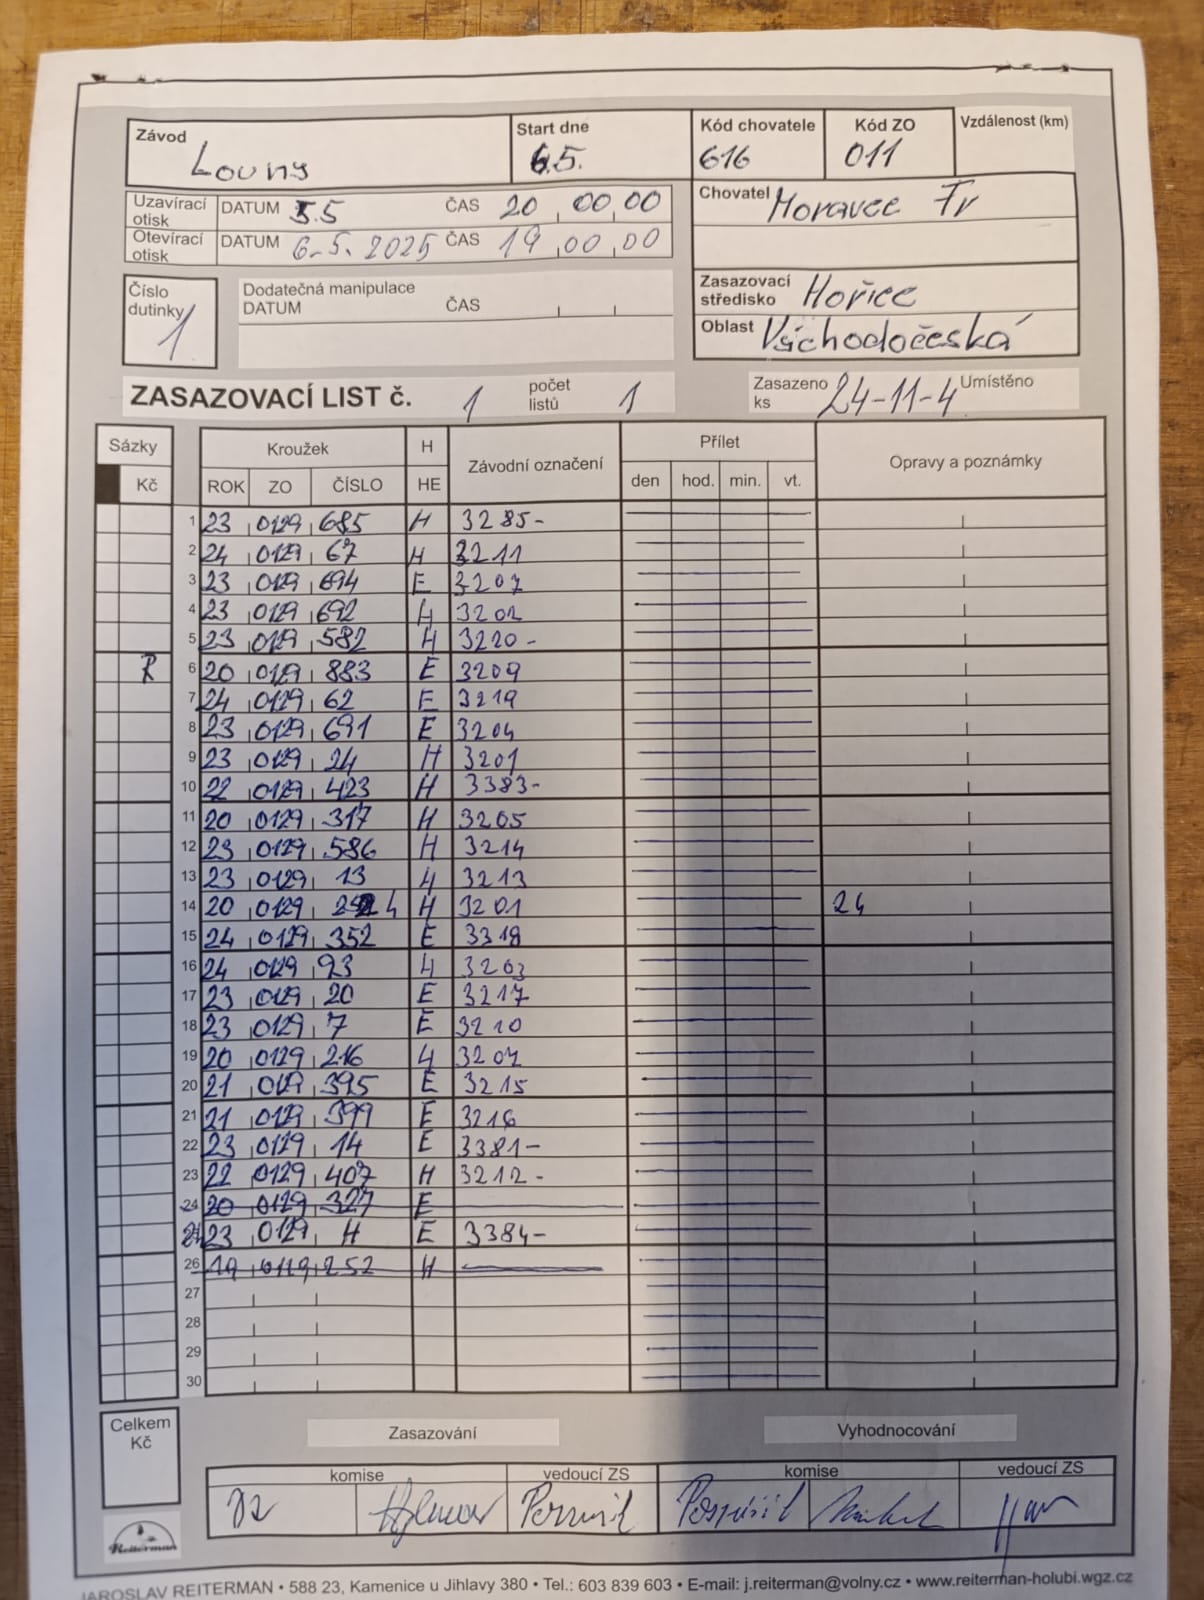 Závod Louny
Start dne 6.5.
Kód chovatele 616
Kód ZO 011
Vzdálenost (km)
Uzavírací otisk DATUM 5.5 ČAS 20 00 00
Otevírací otisk DATUM 6.5. 2025 ČAS 19 00 00
Chovatel Moravec Fr
Číslo dutinky 1
Dodatečná manipulace
DATUM ČAS
Zasazovací středisko Hořice
Oblast Východočeská
ZASAZOVACÍ LIST č. 1 počet listů 1
Zasazeno ks 24-11-4 Umístěno
Sázky Kroužek H Závodní označení Přílet Opravy a poznámky
Kč ROK ZO ČÍSLO HE den hod. min. vt.
1 23 0129 685 H 3285-
2 24 0129 67 H 3211
3 23 0129 694 E 3207
4 23 0129 692 H 3202
5 23 0129 582 H 3220-
R 6 20 0129 883 E 3209
7 24 0129 62 E 3219
8 23 0129 691 E 3204
9 23 0129 24 H 3201
10 22 0129 423 H 3383-
11 20 0129 317 H 3205
12 23 0129 586 H 3214
13 23 0129 13 H 3213
14 20 0129 H 3201 24
15 24 0129 352 E 3318
16 24 0129 93 H 3203
17 23 0129 20 E 3217
18 23 0129 7 E 3210
19 20 0129 216 H 3207
20 21 0129 395 E 3215
21 21 0129 399 E 3216
22 23 0129 14 E 3381-
23 22 0129 407 H 3212-
24 20 0129 327 E
23 0129 H E 3384-
26 19 0119 252 H
27
28
29
30
Celkem Kč
Zasazování Vyhodnocování
komise vedoucí ZS komise vedoucí ZS
Pospíšil
Reiterman
JAROSLAV REITERMAN • 588 23, Kamenice u Jihlavy 380 • Tel.: 603 839 603 • E-mail: j.reiterman@volny.cz • www.reiterman-holubi.wgz.cz